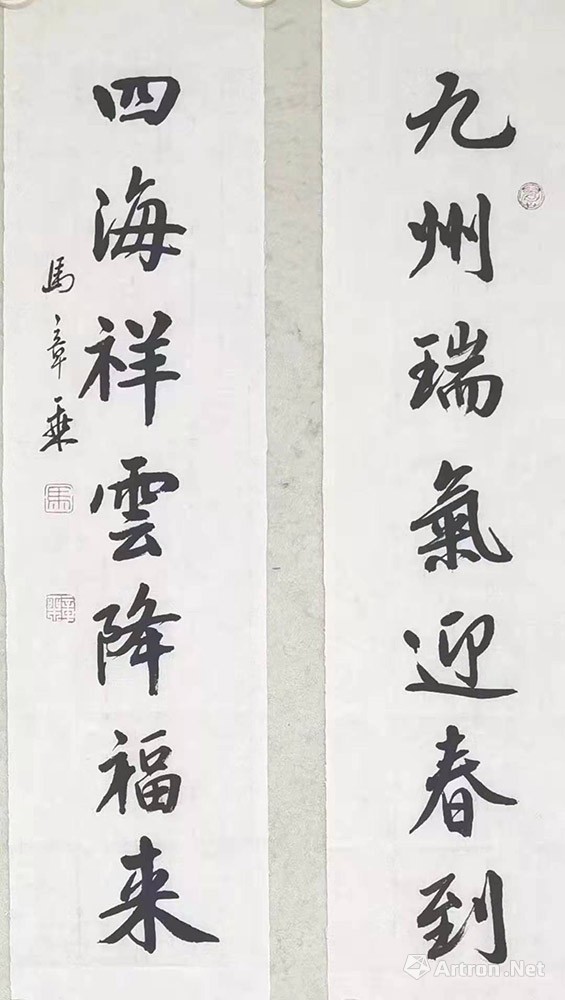 九州瑞氣迎春到
四海祥雲降福来
馬章乗
馬
Artron.Net